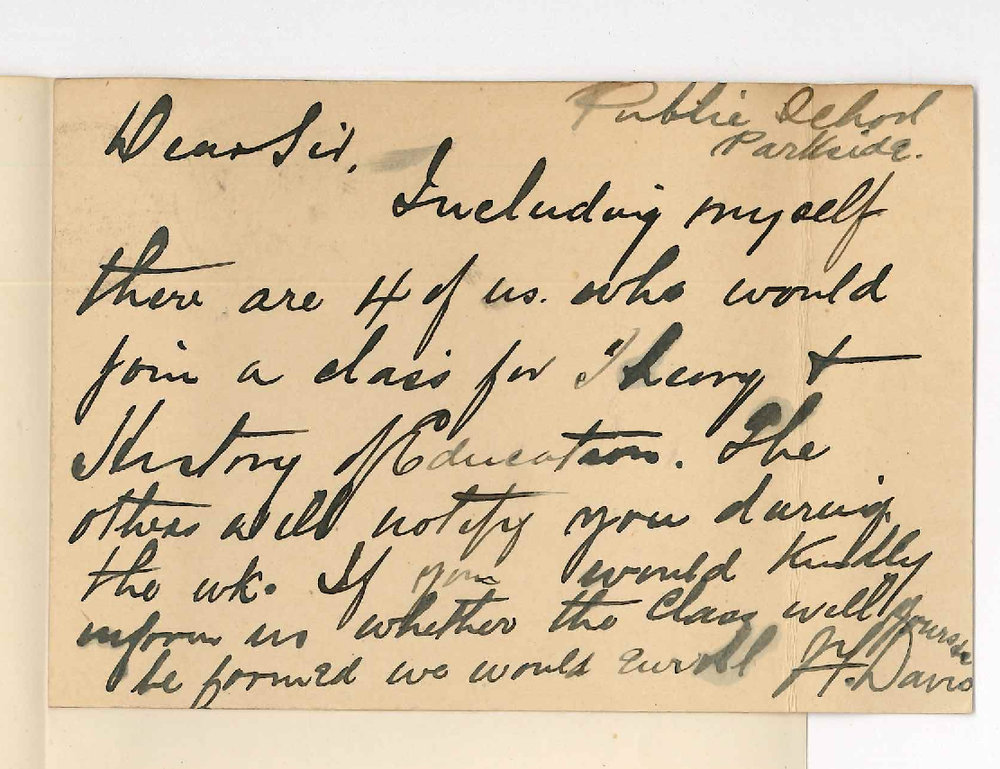 Public School
Parkside.
Dear Sir,
Including myself
there are 4 of us. who would
join a class for Theory &
History of Education. The
others will notify you during
the wk. If you would kindly
inform us whether the Class will
be formed we would enroll
Yours
H. Davis